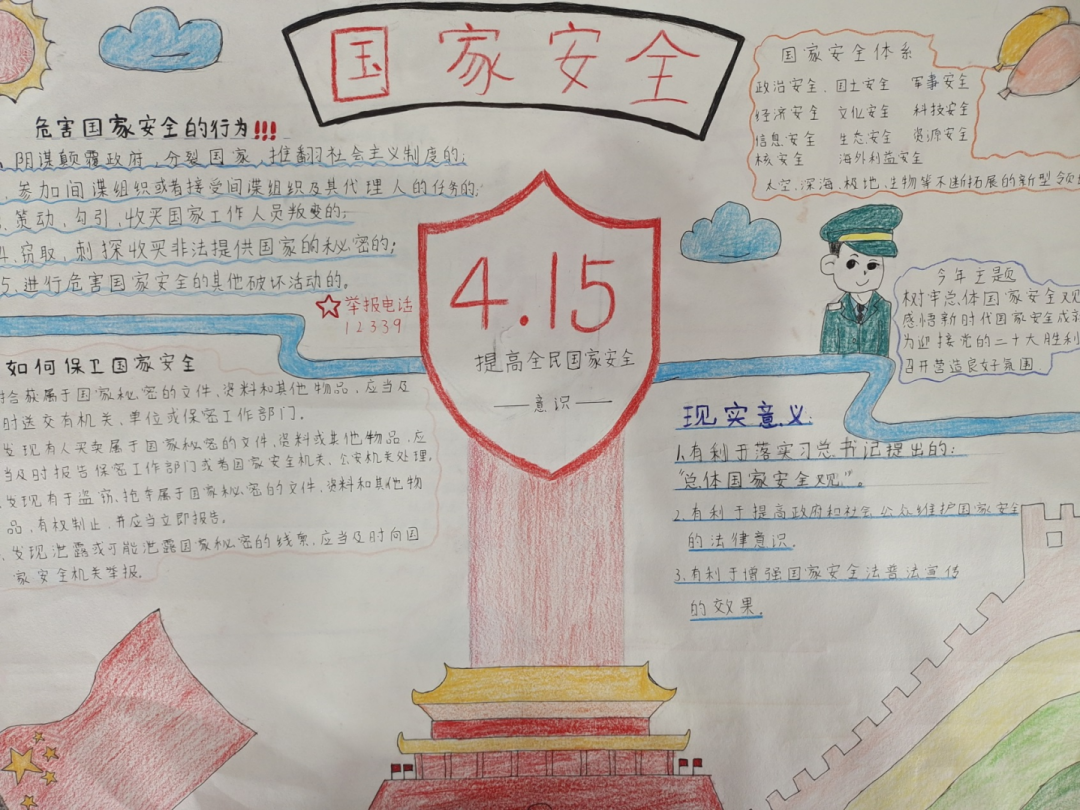 国家安全
危害国家安全的行为!!!
阴谋颠覆政府,分裂国家,推翻社会主义制度的;
参加间谍组织或者接受间谍组织及其代理人的任务的;
策动,勾引,收买国家工作人员叛变的;
4.窃取,刺探收买非法提供国家的秘密的;
5.进行危害国家安全的其他破坏活动的。
举报电话
12339
如何保卫国家安全
拾获属于国家秘密的文件、资料和其他物品,应当及
时送交有机关、单位或保密工作部门.
发现有人买卖属于国家秘密的文件、资料或其他物品,应
当及时报告保密工作部门或者国家安全机关、公安机关处理.
发现有于盗窃、抢夺属于国家秘密的文件、资料和其他物
品,有权制止,并应当立即报告。
发现泄露或可能泄露国家秘密的线索,应当及时向国
家安全机关举报.
4.15
提高全民国家安全
——意识——
国家安全体系
政治安全、国土安全 军事安全
经济安全 文化安全 科技安全
信息安全 生态安全 资源安全
核安全 海外利益安全
太空、深海、极地、生物等不断拓展的新型领
今年主题
树牢总体国家安全观
感悟新时代国家安全成就
为迎接党的二十大胜利
召开营造良好氛围
现实意义:
1.有利于落实习总书记提出的:
“总体国家安全观”。
2.有利于提高政府和社会公众维护国家安全
的法律意识.
3.有利于增强国家安全法普法宣传
的效果.